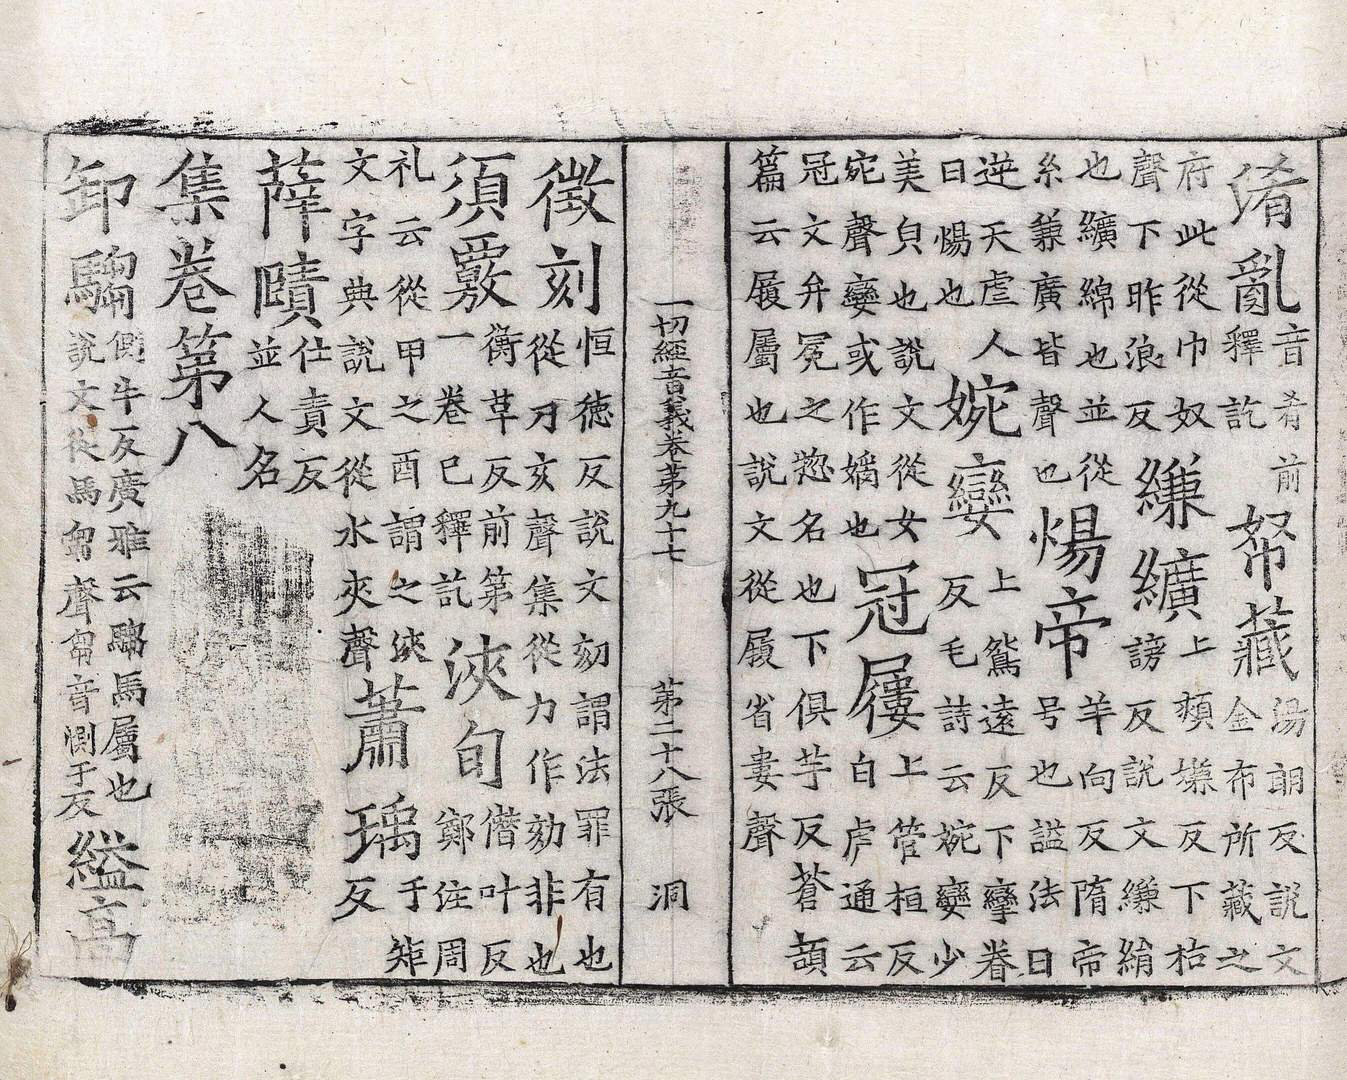 淆亂音肴前釋訖帑藏湯朗反說文金布所藏之
府此從巾奴聲下昨浪反縑纊上頰嫌反下枯謗反說文縑絹
也纊綿也並從糸兼廣皆聲也煬帝羊向反隋帝号也謚法曰
逆天虐人曰煬也婉孌上鴛遠反下孿眷反毛詩云婉孌少
美皃也說文從女宛聲孌或作嫡也冠屨上管桓反白虎通云
冠文弁冕之惣名也下俱芋反蒼頡篇云履屬也說文從履省婁聲
一切經音義卷苐九十七 苐二十八張 洞
徵刻恒徳反說文刻謂法罪有也從刀亥聲集從力作劾非也
須覈衡革反前第一卷已釋訖浹旬僭叶反鄭注周
礼云從甲之酉謂之浹文字典說文從水夾聲蕭瑀于矩反
薛賾仕責反並人名
集卷第八
卸騶側牛反廣雅云騶馬屬也說文從馬芻聲芻音惻于反縊高